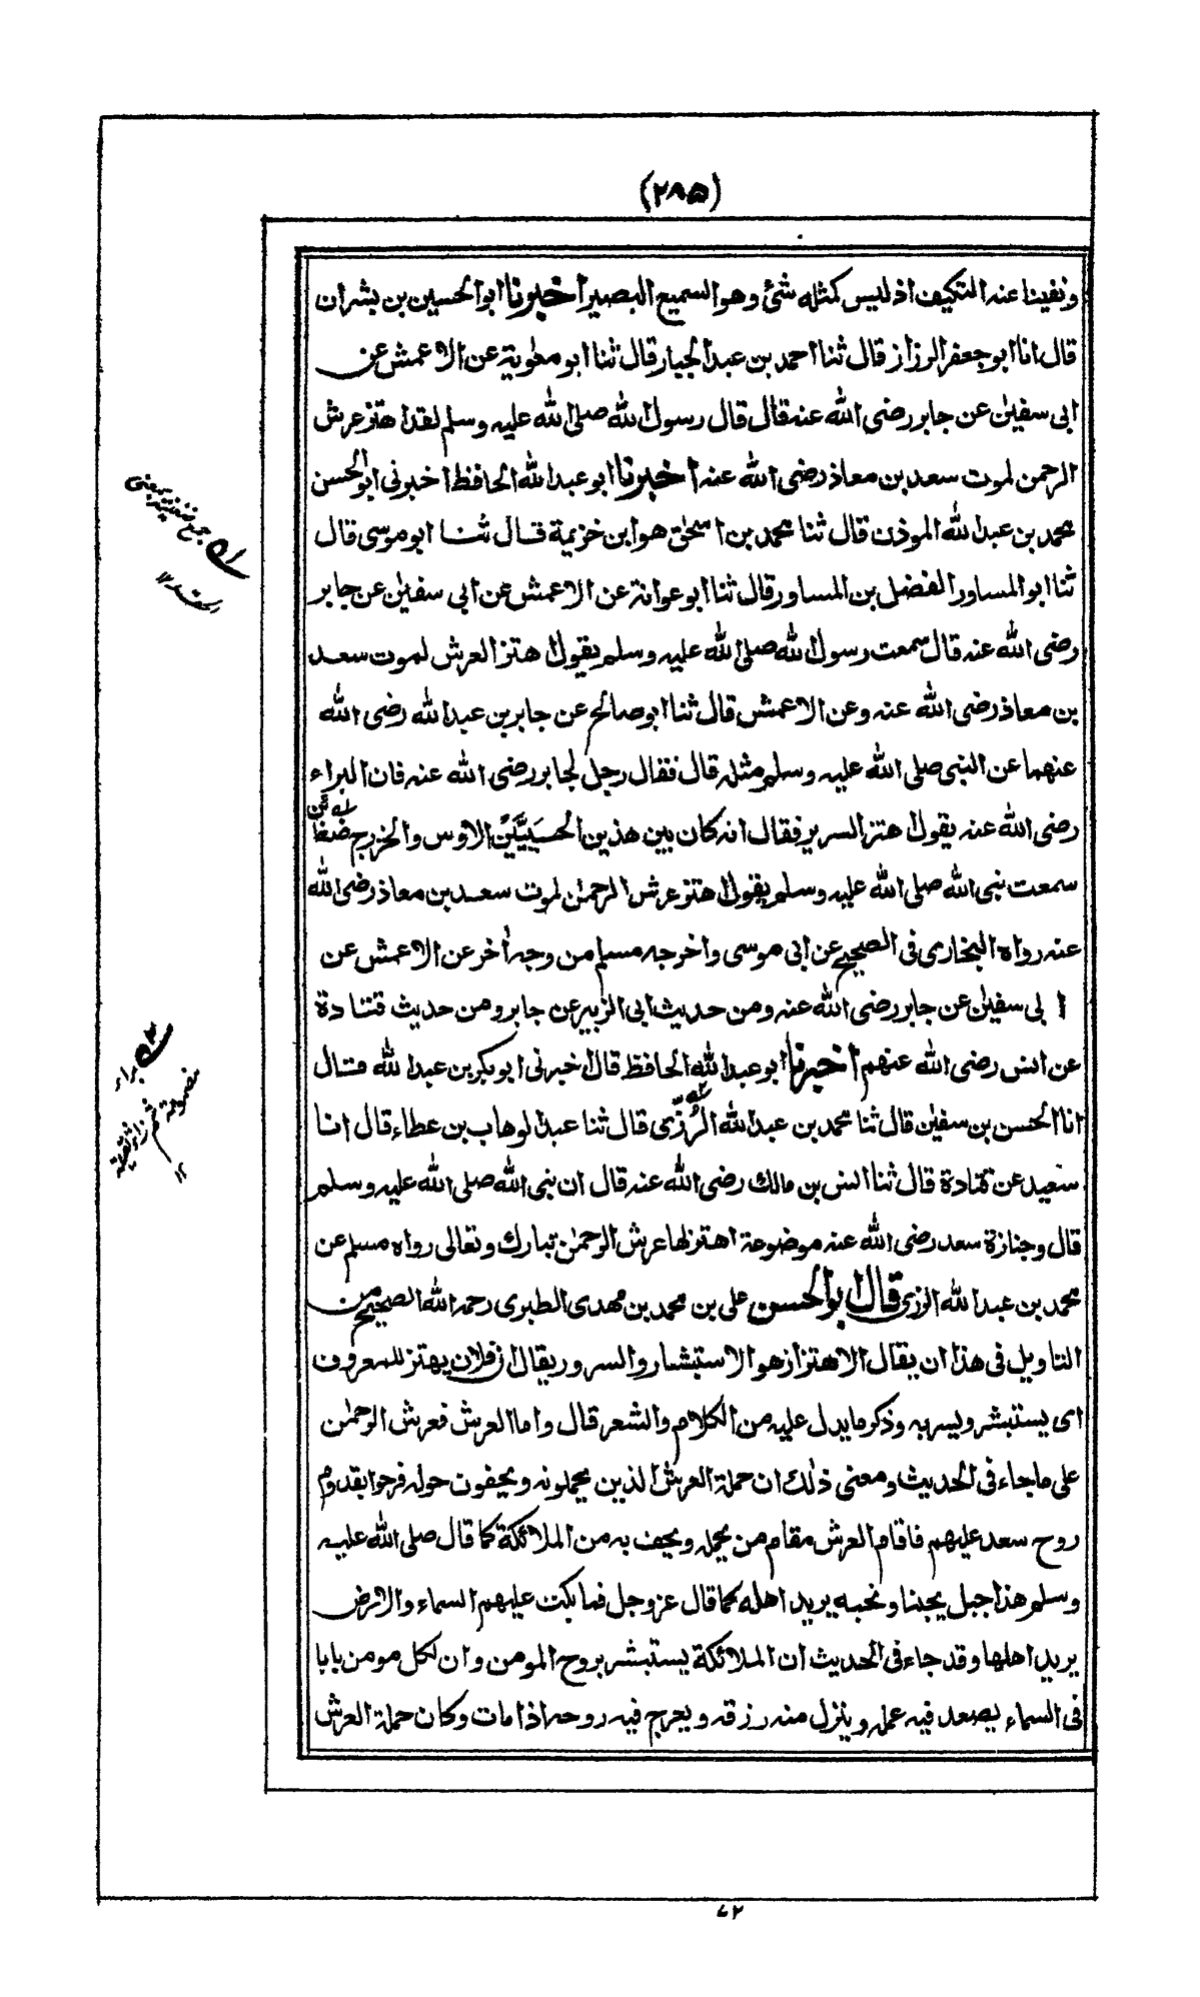 (٢٨٥)
ونفينا عنه التكيف اذ ليس كمثله شئ وهو السميع البصير اخبرنا ابو الحسين بن بشران
قال انا ابو جعفر الرزاز قال ثنا احمد بن عبد الجبار قال ثنا ابو معوية عن الاعمش عن
ابى سفين عن جابر رضى الله عنه قال قال رسول الله صلى الله عليه وسلم لقد اهتز عرش
الرحمن لموت سعد بن معاذ رضى الله عنه اخبرنا ابو عبد الله الحافظ اخبرنى ابو الحسن
محمد بن عبد الله الموذن قال ثنا محمد بن اسحق هو ابن خزيمة قال ثنا ابو موسى قال
ثنا ابو المساور الفضل بن المساور قال ثنا ابو عوانة عن الاعمش عن ابى سفين عن جابر
رضى الله عنه قال سمعت رسول الله صلى الله عليه وسلم يقول اهتز العرش لموت سعد
بن معاذ رضى الله عنه وعن الاعمش قال ثنا ابو صالح عن جابر بن عبد الله رضى الله
عنهما عن النبى صلى الله عليه وسلم مثله قال فقال رجل لجابر رضى الله عنه فان البراء
رضى الله عنه يقول اهتز السرير فقال انه كان بين هذين الحسيين الاوس والخزرج ضغائن
سمعت نبى الله صلى الله عليه وسلم يقول اهتز عرش الرحمن لموت سعد بن معاذ رضى الله
عنه رواه البخارى فى الصحيح عن ابى موسى واخرجه مسلم من وجه اخر عن الاعمش عن
ابى سفين عن جابر رضى الله عنه ومن حديث ابى الزبير عن جابر ومن حديث قتادة
عن انس رضى الله عنهم اخبرنا ابو عبد الله الحافظ قال اخبرنى ابو بكر بن عبد الله قال
انا الحسن بن سفين قال ثنا محمد بن عبد الله الرُزّى قال ثنا عبد الوهاب بن عطاء قال انا
سعيد عن قتادة قال ثنا انس بن مالك رضى الله عنه قال ان نبى الله صلى الله عليه وسلم
قال وجنازة سعد رضى الله عنه موضوعة اهتز لها عرش الرحمن تبارك وتعالى رواه مسلم عن
محمد بن عبد الله الرزى قال ابو الحسن على بن محمد بن مهدى الطبرى رحمه الله الصحيح من
التاويل فى هذا ان يقال الاهتزاز هو الاستبشار والسرور يقال ان فلان يهتز للمعروف
اى يستبشر ويسر به وذكر ما يدل عليه من الكلام والشعر قال واما العرش فعرش الرحمن
على ما جاء فى الحديث ومعنى ذلك ان حملة العرش الذين يحملونه ويحفون حوله فرحوا بقدوم
روح سعد عليهم فاقام العرش مقام من يحمله ويحف به من الملائكة كما قال صلى الله عليه
وسلم هذا جبل يحبنا ونحبه يريد اهله كما قال عز وجل فما بكت عليهم السماء والارض
يريد اهلها وقد جاء فى الحديث ان الملائكة يستبشر بروح المومن وان لكل مومن بابا
فى السماء يصعد فيه عمله وينزل منه رزقه ويعرج فيه روحه اذا مات وكان حملة العرش
جمع ضغينة بمعنى
الحقد ١٢
براء
مضمومة ثم زاى ثقيلة
١٢
٧٢